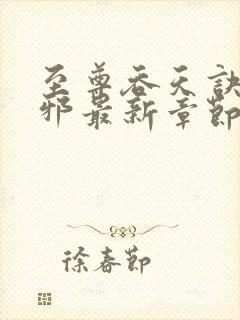 至尊吞天诀
邪最新章节
徐春节